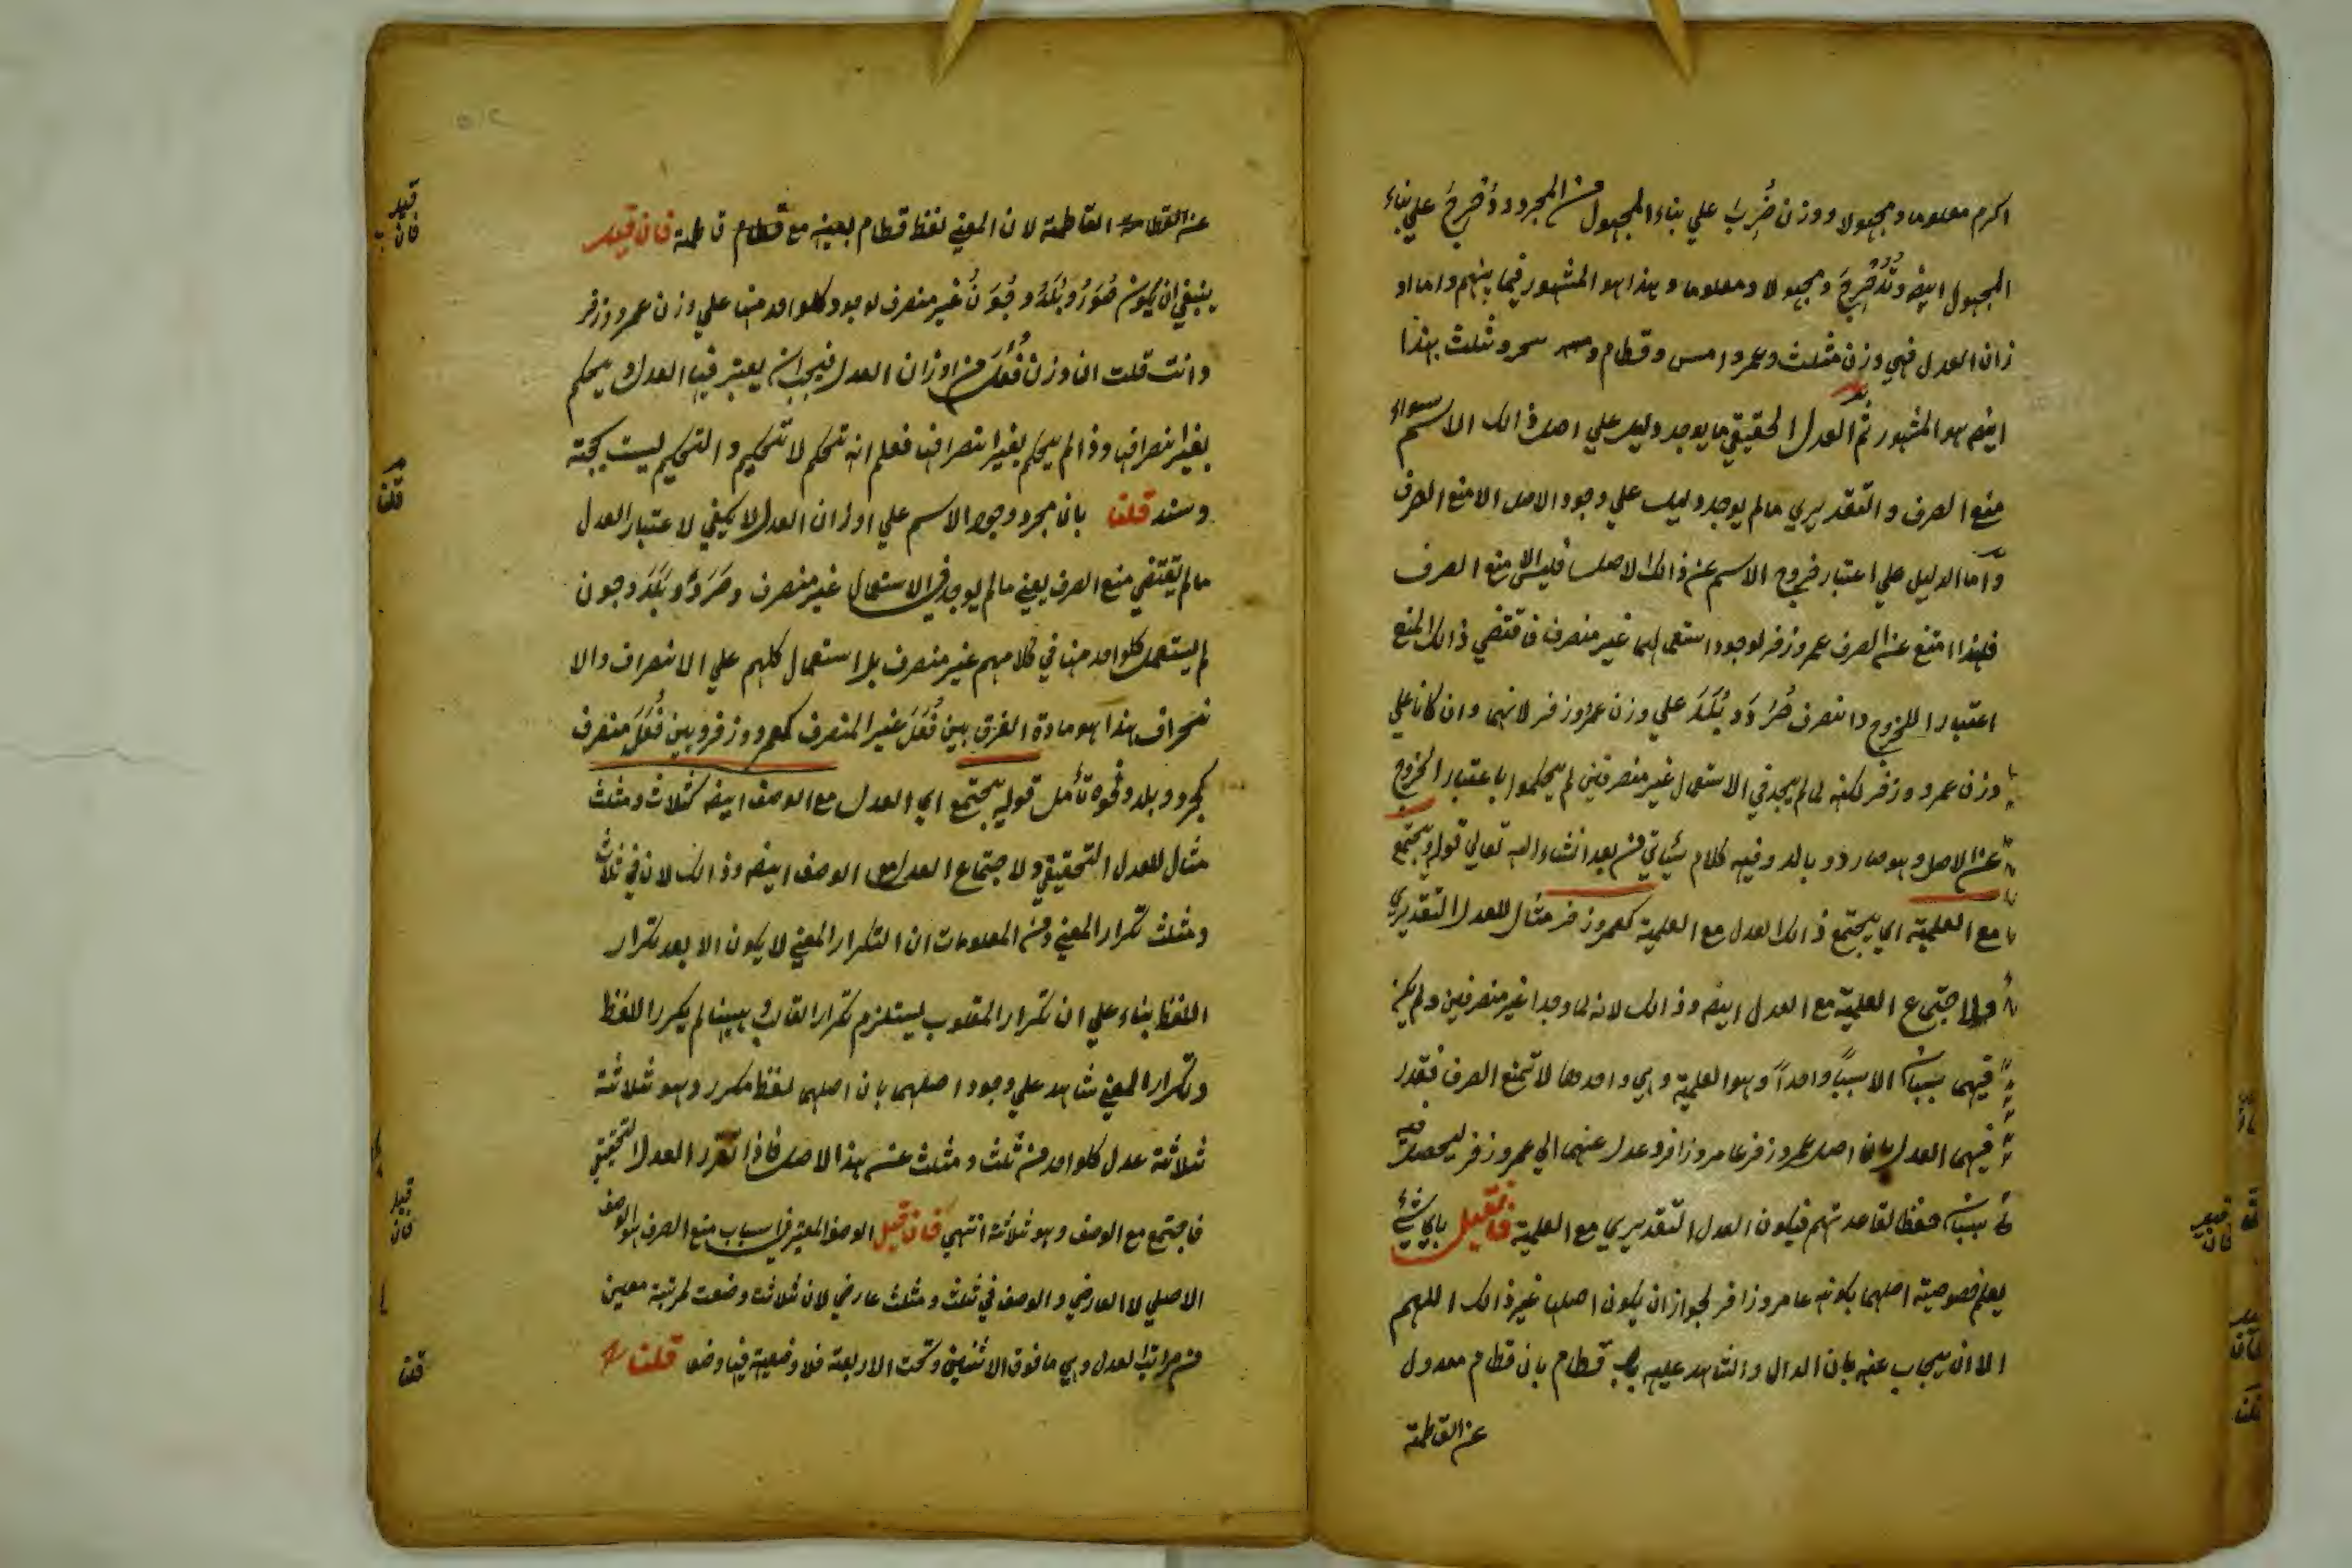 اكرم معلوما ومجهولا ووزن ضُرِبَ علي بناء المجهول من المجرد ودُحرِجَ علي بناء
المجهول ايضا وتُدُحرِجَ ومجهولا ومعلوما وهذا هو المشهور فيما بينهم واما او
زان العدل فهي وزن مثلث وعمر وامس وقطام وسحر وثلث هذا
ايضا هو المشهور ثم العدل الحقيقي ما يوجد دليل علي اصل ذالك الاسم سواء
منع الصرف والتقديري مالم يوجد دليل علي وجود الاصل الا منع الصرف
واما الدليل علي اعتبار خروج الاسم عن ذالك الاصل فليس الا منع الصرف
فلهذا امتنع عن الصرف عمر وزفر لوجود استعمالهما غير منصرف فاقتضي ذالك المنع
اعتبار الخروج وانصرف صُرَد وبُلَد علي وزن عمر وزفر لانهما وان كانا علي
وزن عمر وزفر لكنه لما لم يجد في الاستعمال غير منصرفين لم يحكموا باعتبار الخروج
عن الاصل وهو صارد وبالد وفيه كلام سيأتي من بعد انشاء الله تعالي قوله ويجتمع
مع العلمية اي يجتمع ذالك العدل مع العلمية كعمر وزفر مثال للعدل التقديري
ولاجتماع العلمية مع العدل ايضا وذالك لانه لما وجدا غير منصرفين ولم يكن
فيهما سببان الا سبباً واحداً وهو العلمية وهي واحدها لا تمنع الصرف فقدر
فيهما العدل بان اصل عمر وزفر عامر وزافر وعدل عنهما الي عمر وزفر ليحصل فيه
سببان حفظا لقاعدتهم فيكون العدل التقديري مع العلمية فان قيل باي شيء
يعلم خصوصية اصلهما بكونه عامر وزافر لجواز ان يكون اصلها غير ذالك اللهم
الا ان يجاب عنه بان الدال والشاهد عليه باب قطام بان قطام معدول
عن القاطمة
عن القاطمة لان المعني لفظ قطام بعينه مع قطام قاطمة فان قيل
ينبغي ان يكون صُوَرُ وبُلَدُ وجُوَنُ غير منصرف لوجود كلواحد منها علي وزن عمر وزفر
وانت قلت ان وزن فُعَلَ من اوزان العدل فيجب ان يعتبر فيها العدل ويحكم
بغير انصرافها وذا لم يحكم بغير انصرافها فعلم انه تحكم لا تحكيم والتحكيم ليست بحجة
وسند قلنا بان مجرد وجود الاسم علي اوزان العدل لا يكفي لاعتبار العدل
مالم تقتضي منع الصرف يعني مالم يوجد في الاستعمال غير منصرف وصُرَد وبُلَد وجون
لم يستعمل كلواحد منها في كلامهم غير منصرف بل استعمال كلهم علي الانصراف والا
نحراف هذا هو مادة الفرق بين فُعَلَ غير المنصرف كعمر وزفر وبين فُعَلَ منصرف
كجرد وبلد ونحوه تأمل قوله يجتمع اي العدل مع الوصف ايضا كثلاث ومثلث
مثال للعدل التحقيقي ولاجتماع العدل مع الوصف ايضا وذالك لان في ثلاث
ومثلث تكرار المعني ومن المعلومات ان التكرار المعني لا يكون الا بعد تكرار
اللفظ بناء علي ان تكرار المقلوب ليستلزم تكرار القالب وههنا لم يكرر اللفظ
وتكرار المعني شاهد علي وجود اصلهما بان اصلهما لفظ مكرر وهو ثلاثة
ثلاثة عدل كلواحد من ثلث ومثلث عن هذا الاصل فاذا تقرر العدل التحقيقي
فاجتمع مع الوصف وهو ثلاثة انتهي فان قيل الوصف المعتبر في اسباب منع الصرف هو الوصف
الاصلي لا العارضي والوصف في ثلث ومثلث عارضي لان ثلاثة وضعت لمرتبة معين
من مراتب العدل وهي مافوق الاثنين وتحت الاربعة فلا وضعية فيها وضعا قلنا